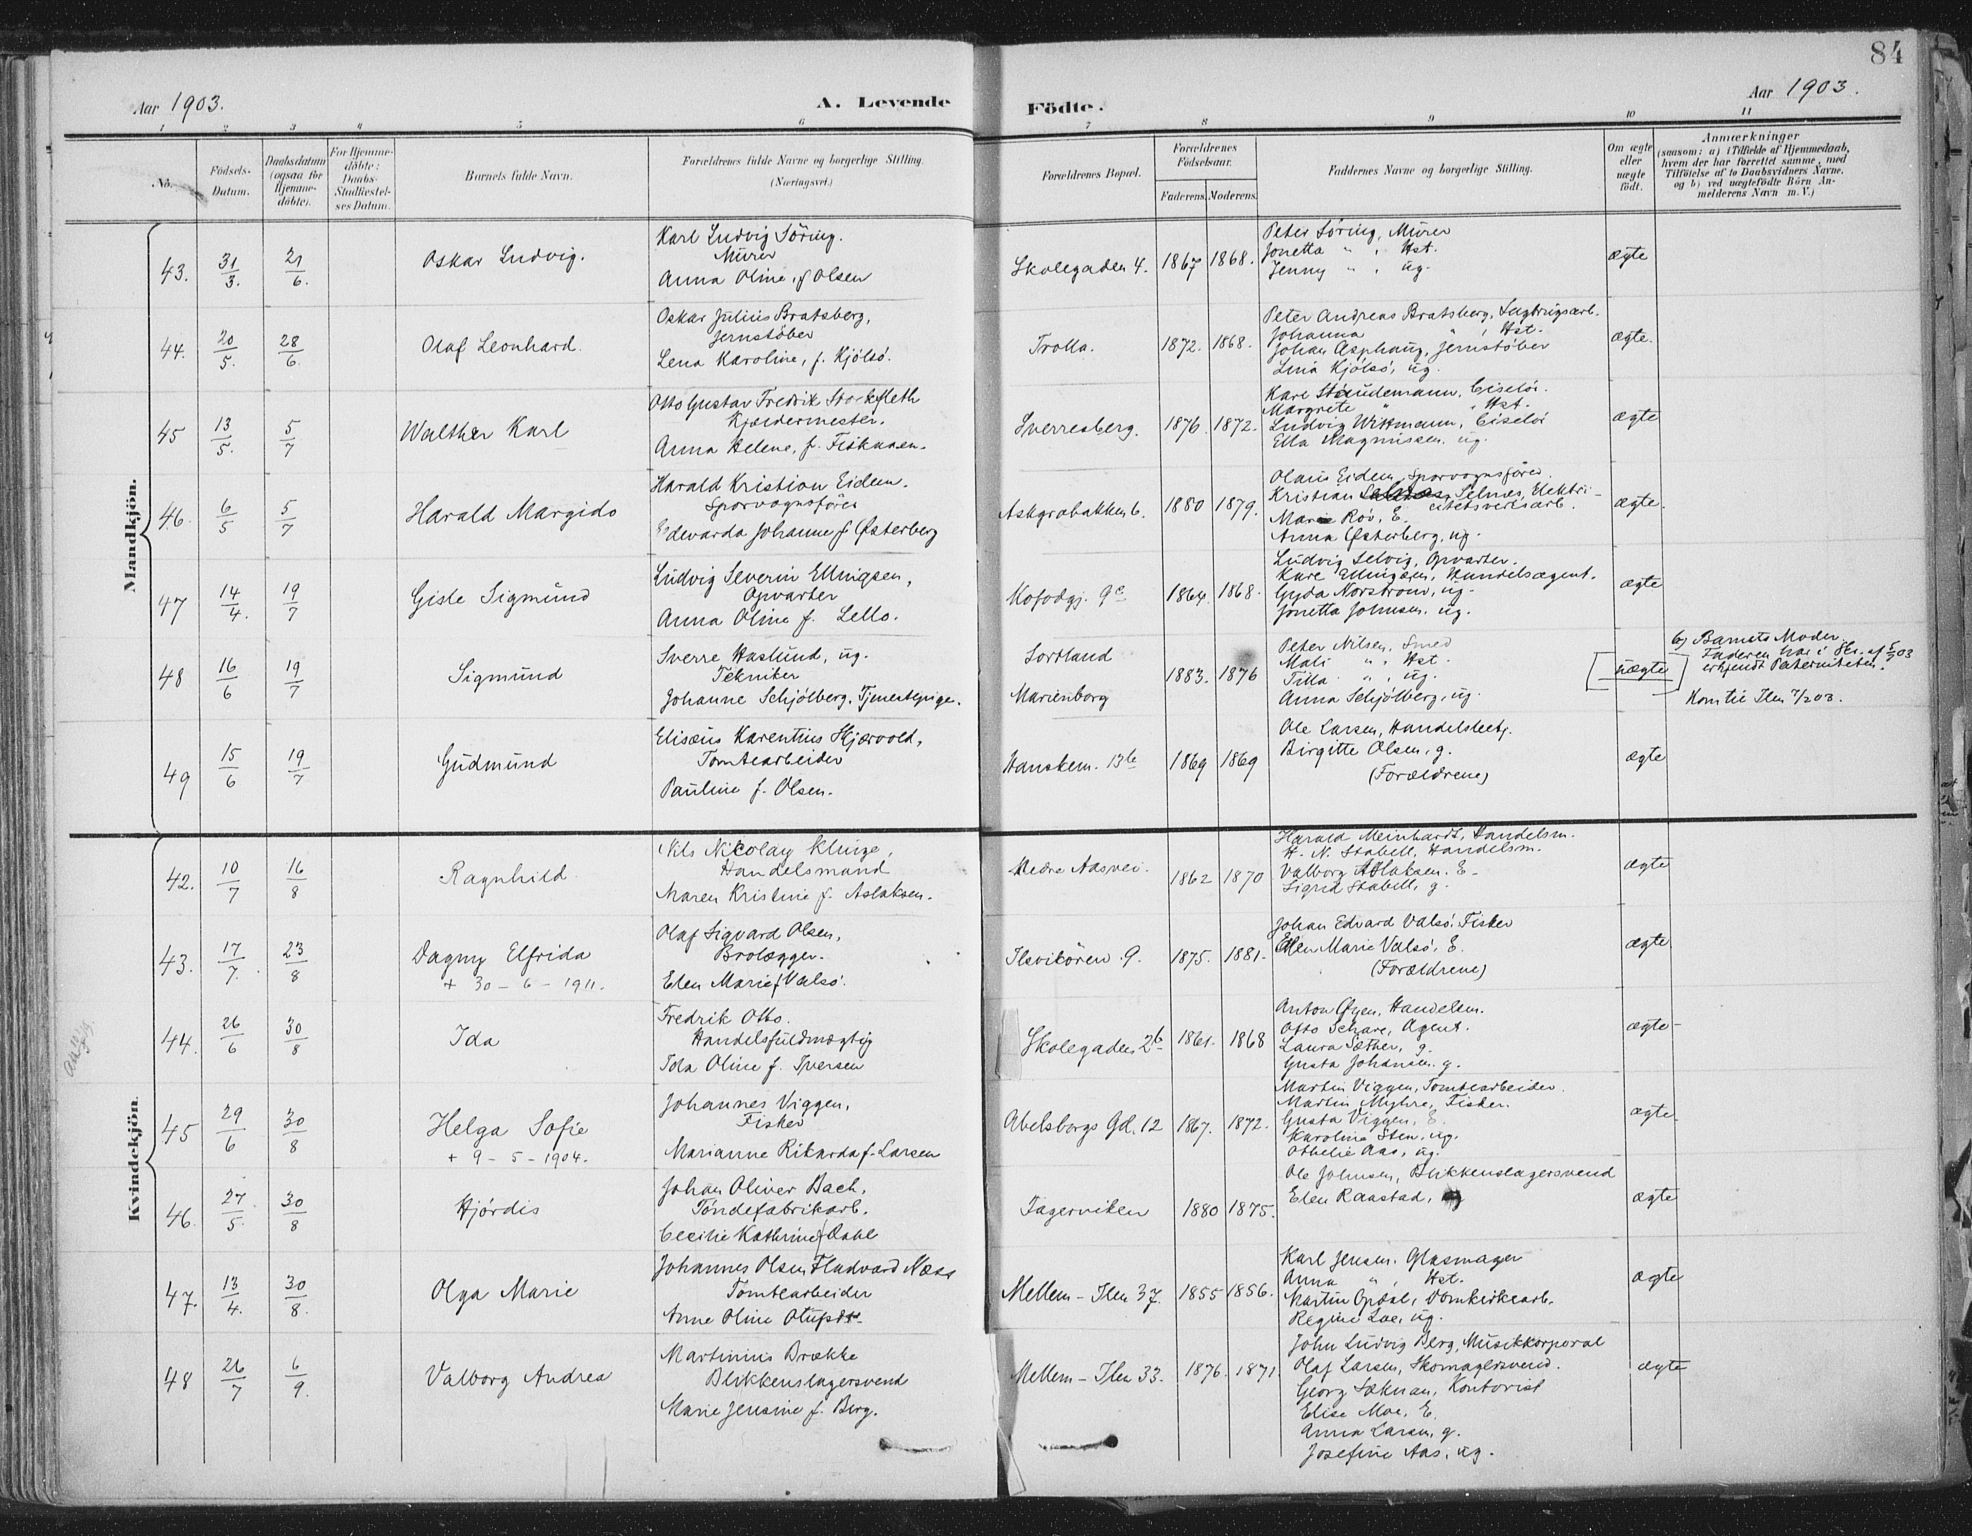 84
Aar 1903.
A. Levende Födte.
Aar 1903.
1 2 3 4 5 6 7 8 9 10 11
No.
Födsels-Datum.
Daabsdatum (ogsaa for Hjemme-döbte).
For Hjemme-döbte: Daabs-Stadfæstel-ses Datum.
Barnets fulde Navn.
Forældrenes fulde Navne og borgerlige Stilling. (Næringsvei.)
Forældrenes Bopæl.
Forældrenes Födselsaar.
Faderens. Moderens.
Faddernes Navne og borgerlige Stilling.
Om ægte eller uægte födt.
Anmærkninger
(saasom: a) i Tilfælde af Hjemmedaab, hvem der har forrettet samme, med Tilföielse af to Daabsvidners Navne. og b) ved uægtefödte Börn An-melderens Navn m. V.)
Mandkjön.
43. 31/3. 21/6. Oskar Ludvig.
Karl Ludvig Söring.
Murer
Anna Oline, f Olsen
Skolegaden 4. 1867 1868.
Peter Söring, Murer
Jonetta " , Hst.
Jenny " , ug.
ægte
44. 20/5. 28/6. Olaf Leonhard.
Oskar Julius Bratsberg,
Jernstöber
Lena Karoline, f. Kjölsö.
Trolla. 1872. 1868.
Peter Andreas Bratsberg,
Johanna " , Hst.
Johan Asphaug, Jernstöber
Lina Kjölsö, ug.
ægte.
45 13/5. 5/7 Walther Karl
Otto Gustav Fredrik Stockfleth
Kjældermester.
Anna Helene, f. Fiskaaen.
Sverresberg. 1876. 1872.
Karl Staudemann, Ciselör.
Margrete " , Hst.
Ludvig Wittmann, Ciselör
Ella Magnussen, ug.
ægte
46. 6/5 5/7 Harald Margido
Harald Kristian Eidem.
Sporvognsförer
Edevarda Johanne f Østerberg
Askgrabakken 6. 1880 1879.
Olaus Eidem, Sporvognsförer.
Kristian Selnes, Elektri-
citetsverksarb.
Marie Röv, E.
Anna Østerberg, ug.
ægte.
47 14/4. 19/7 Gisle Sigmund
Ludvig Severin Ellingsen,
Opvarter
Anna Oline f. Lello.
Kofodgj. 9c 1864. 1868.
Ludvig Selvig, Opvarter.
Kare Ellingsen, Handelsagent.
Gyda Norström, ug.
Jonetta Johnsen, ug.
ægte
48 16/6 19/7 Sigmund
Sverre Haslund, ug.
Tekniker
Johanne Schjölberg, Tjenestepige.
Sortland
Marienborg
1883. 1876
Peter Nilsen, Smed
Mali " , Hst.
Tilla " , ug.
Anna Schjölberg, ug.
uægte
b) Barnets Moder.
Faderen har i Skr. af 5/7 03
erkjendt Paterniteten.
Kom til Ilen 7/2 03.
49 15/6 19/7 Gudmund
Elisæus Karentius Hjærvold,
Tomtearbeider
Pauline f. Olsen.
Hanskem. 13b 1869 1869
Ole Larsen, Handelsbetj.
Birgitte Olsen, g.
(Forældrene)
ægte
Kvindekjön.
42. 10/7 16/8 Ragnhild.
Nils Nicolay Klinge,
Handelsmand
Maren Kristine f. Aslaksen.
Nedre Aasvei. 1862 1870
Harald Meinhardt, Handelsm.
H. N. Stabell, Handelsm.
Valborg Aslaksen. E.
Sigrid Stabell, g.
ægte
43. 17/7. 23/8 Dagny Elfrida
+ 30 - 6 - 1911.
Olaf Sigvard Olsen,
Brolægger.
Elen Marie f Valsö.
Ilsvikören 9. 1875. 1881.
Johan Edvard Valsö, Fisker
Elen Marie Valsö, E.
(Forældrene)
ægte
44. 26/6 30/8 Ida
Fredrik Otto.
Handelsfuldmægtig
Ida Oline f. Iversen
Skolegaden 2b 1861. 1868
Anton Øyen, Handelsm.
Otto Schare, Agent.
Laura Sæther, g.
Gusta Johansen, g.
ægte
45 29/6 30/8 Helga Sofie
+ 9 - 5 - 1904.
Johannes Viggen,
Fisker
Marianne Rikarda f. Larsen
Abelsborgs Gd. 12 1867. 1872.
Martin Viggen, Tomtearbeider.
Martin Myhre, Fisker.
Gusta Viggen, E.
Karoline Sten, ug.
Othelie Aas, ug.
ægte
46. 27/5. 30/8 Hjördis
Johan Oliver Bach,
Töndefabrikarb.
Cecilie Kathrine f Dahl
Fagerviken 1880 1875.
Ole Johnsen, Blikkenslagersvend
Elen Raastad,
ægte
47. 13/4. 30/8. Olga Marie
Johannes Olsen Fladvard Næss
Tomtearbeider
Anne Oline Olufsdtr
Mellem - Ilen 37. 1855 1856.
Karl Jensen. Glasmager
Anna " , Hst.
Martin Opdal, Domkirkearb.
Regine Loe, ug.
ægte
48 26/7 6/9. Valborg Andrea
Martinius Brække
Blikkenslagersvend
Marie Jensine f. Berg.
Mellem - Ilen 33. 1876. 1871.
John Ludvig Berg, Musikkorporal
Olaf Larsen, Skomagersvend.
Georg Sæknan, Kontorist
Elise Moe, E.
Anna Larsen, g.
Josefine Aas, ug.
ægte